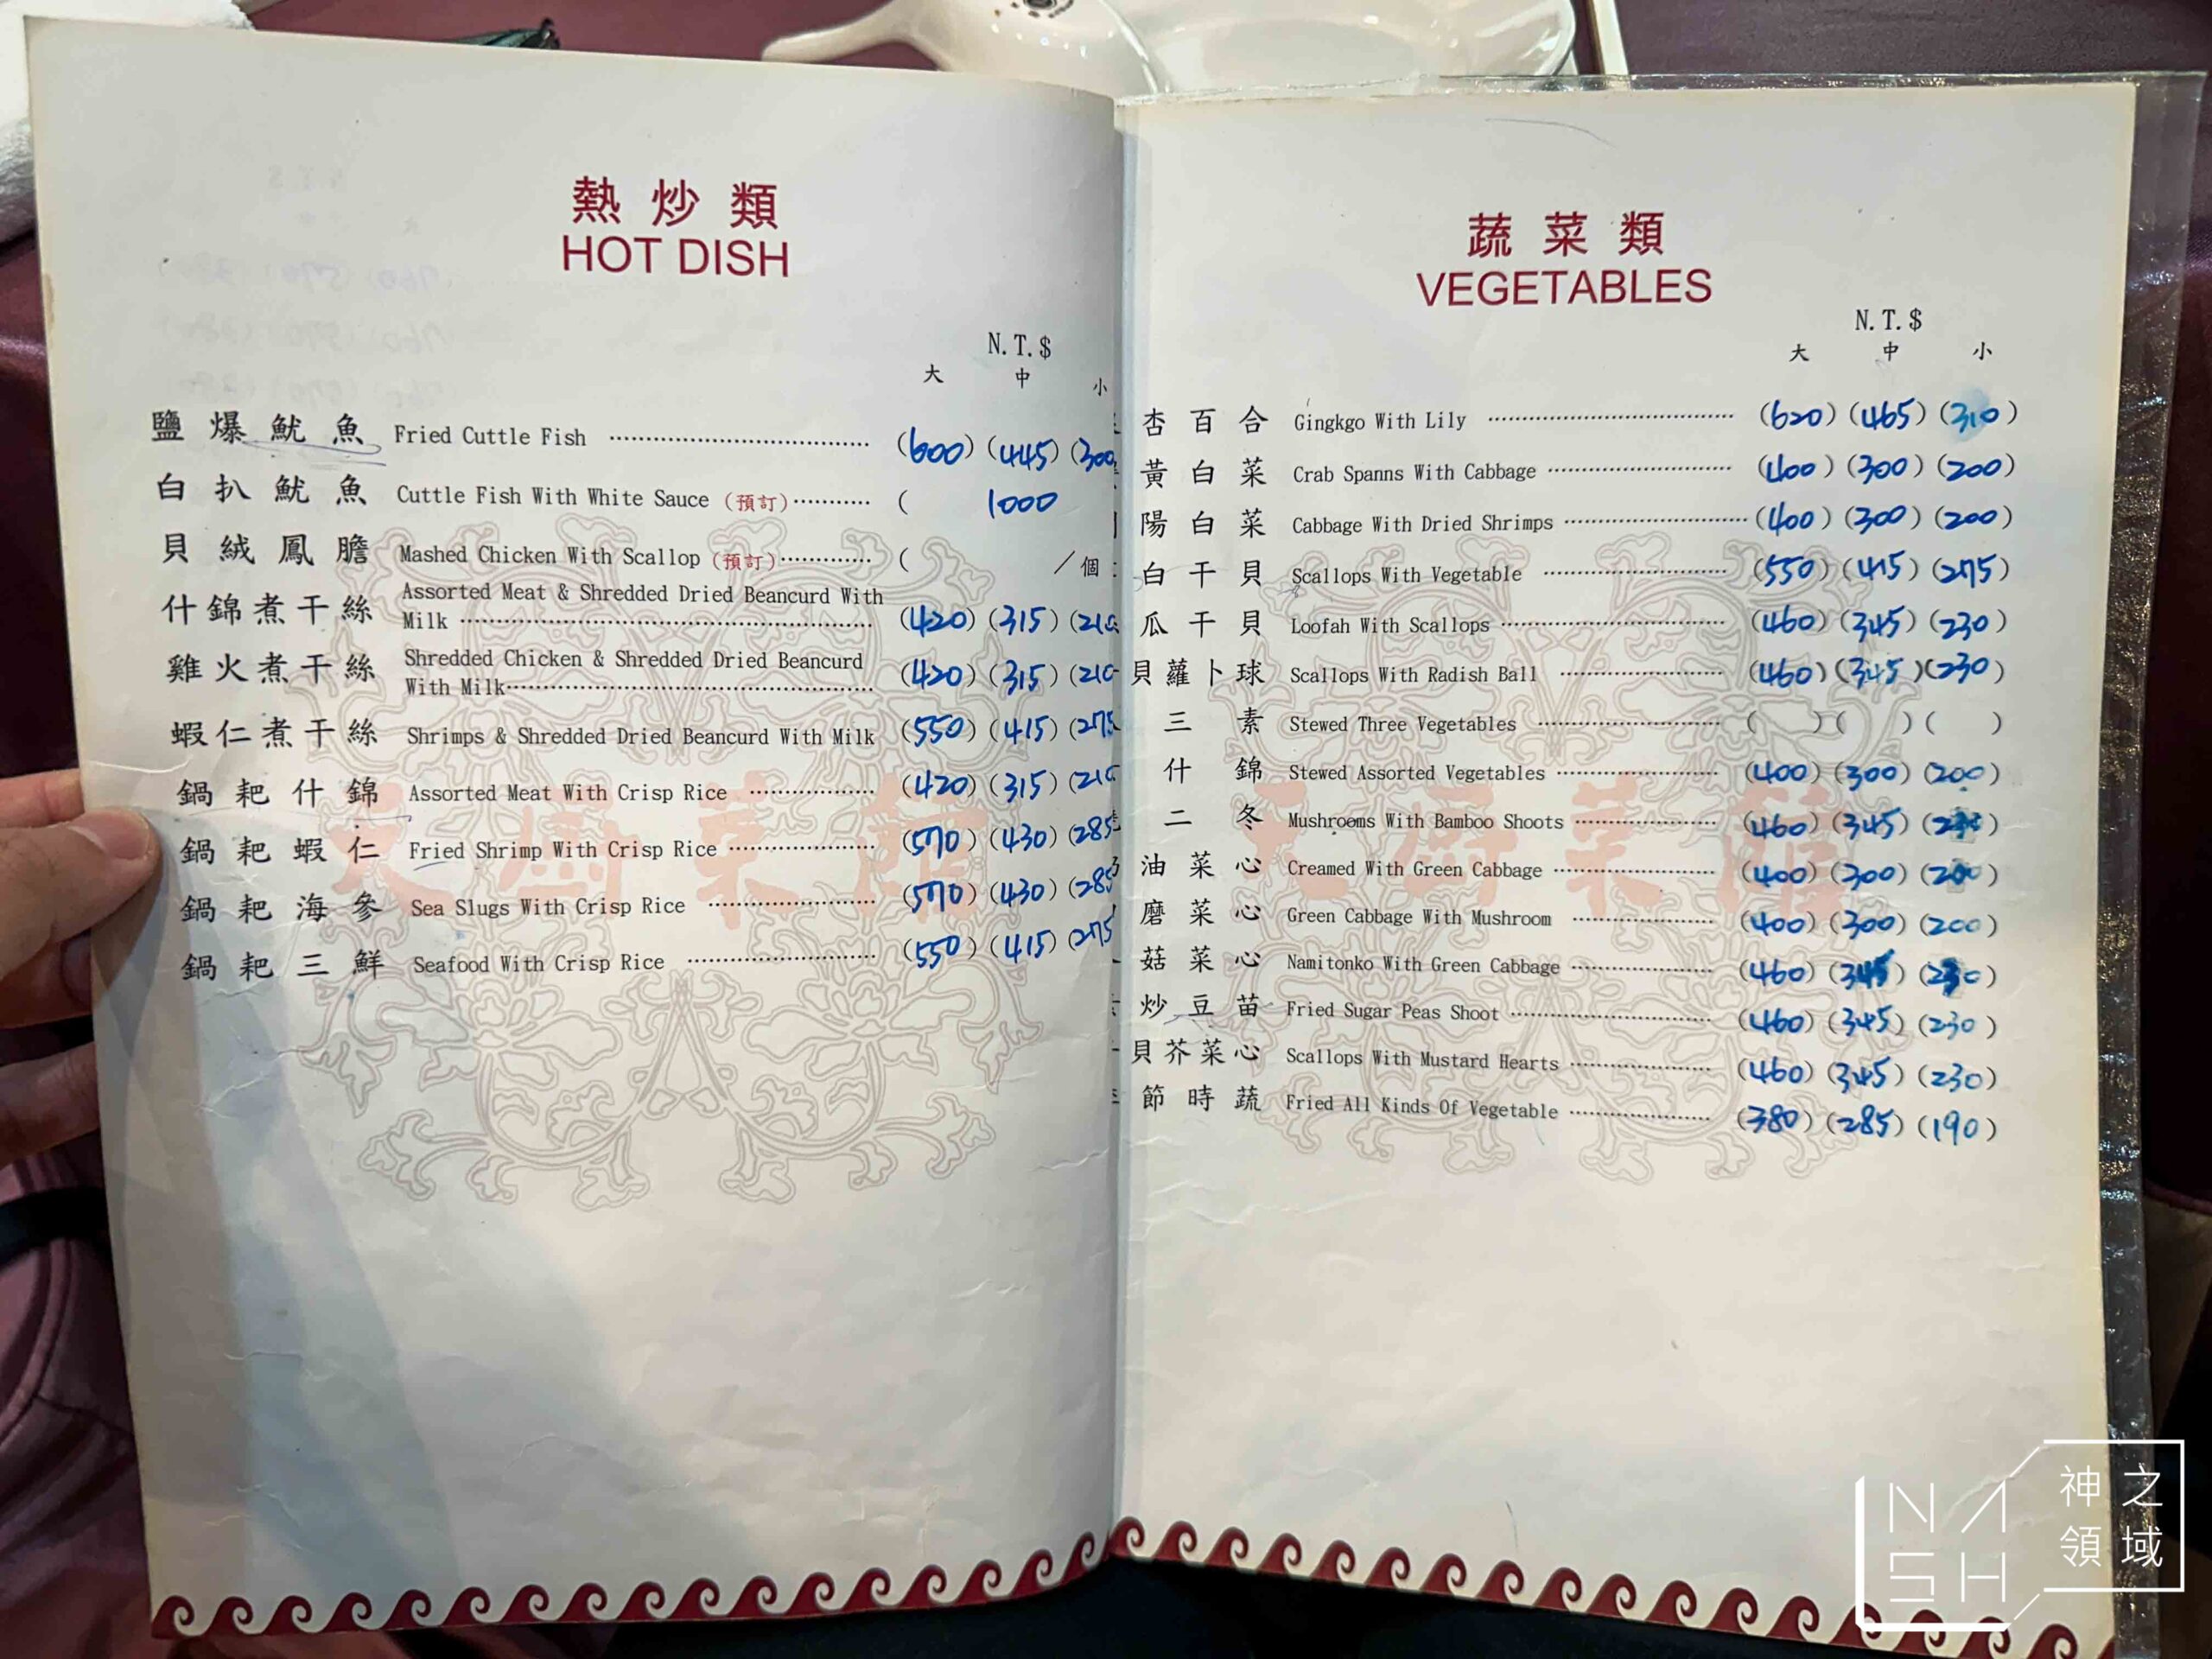 熱炒類
HOT DISH
N.T.$
大 中 小
鹽爆魷魚 Fried Cuttle Fish (600) (445) (300
白扒魷魚 Cuttle Fish With White Sauce (預訂) ( 1000
貝絨鳳膽 Mashed Chicken With Scallop (預訂) ( /個
什錦煮干絲 Assorted Meat & Shredded Dried Beancurd With
Milk (420) (315) (210
雞火煮干絲 Shredded Chicken & Shredded Dried Beancurd
With Milk (420) (315) (210
蝦仁煮干絲 Shrimps & Shredded Dried Beancurd With Milk (550) (415) (275
鍋耙什錦 Assorted Meat With Crisp Rice (420) (315) (210
鍋耙蝦仁 Fried Shrimp With Crisp Rice (570) (430) (285
鍋耙海參 Sea Slugs With Crisp Rice (570) (430) (285
鍋耙三鮮 Seafood With Crisp Rice (550) (415) (275
天廚菜館
蔬菜類
VEGETABLES
N.T.$
大 中 小
杏百合 Gingkgo With Lily (620) (465) (310)
黃白菜 Crab Spanns With Cabbage (400) (300) (200)
陽白菜 Cabbage With Dried Shrimps (400) (300) (200)
白干貝 Scallops With Vegetable (550) (415) (275)
瓜干貝 Loofah With Scallops (460) (345) (230)
貝蘿卜球 Scallops With Radish Ball (460) (345) (230)
三素 Stewed Three Vegetables ( ) ( ) ( )
什錦 Stewed Assorted Vegetables (400) (300) (200)
二冬 Mushrooms With Bamboo Shoots (460) (345) (230)
油菜心 Creamed With Green Cabbage (400) (300) (200)
磨菜心 Green Cabbage With Mushroom (400) (300) (200)
菇菜心 Namitonko With Green Cabbage (460) (345) (230)
炒豆苗 Fried Sugar Peas Shoot (460) (345) (230)
貝芥菜心 Scallops With Mustard Hearts (460) (345) (230)
節時蔬 Fried All Kinds Of Vegetable (380) (285) (190)
天廚菜館
NASH
神之
領域